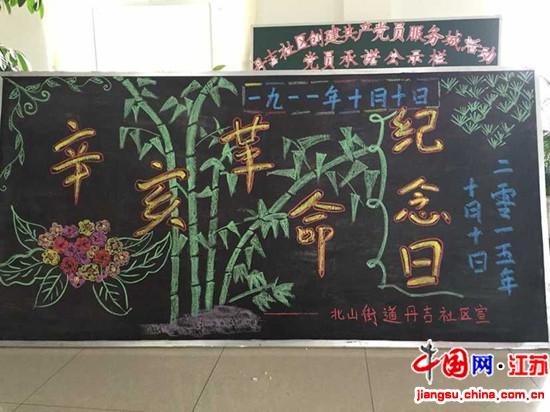 丹吉社区创建共产党员服务城活动
党员承诺公示栏
一九一一年十月十日
辛亥革命
纪念日
二零一五年
十月十日
北山街道丹吉社区宣
中国网·江苏
jiangsu.china.com.cn